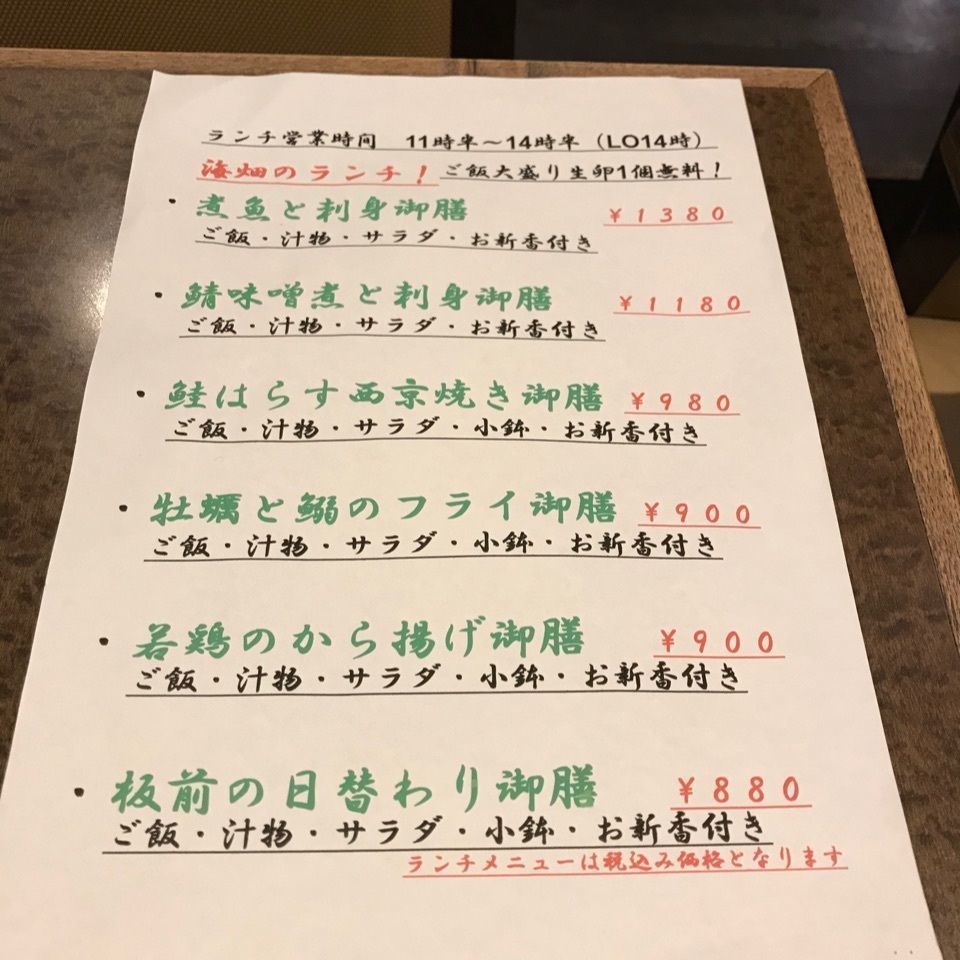 ランチ営業時间 11時半～14時半（LO14時）
海畑のランチ！ご飯大盛り生卵1個無料！
・煮魚と刺身御膳 ￥1380
ご飯・汁物・サラダ・お新香付き
・鯖味噌煮と刺身御膳 ￥1180
ご飯・汁物・サラダ・お新香付き
・鮭はらす西京焼き御膳 ￥980
ご飯・汁物・サラダ・小鉢・お新香付き
・牡蠣と鰯のフライ御膳 ￥900
ご飯・汁物・サラダ・小鉢・お新香付き
・若鶏のから揚げ御膳 ￥900
ご飯・汁物・サラダ・小鉢・お新香付き
・板前の日替わり御膳 ￥880
ご飯・汁物・サラダ・小鉢・お新香付き
ランチメニューは税込み価格となります